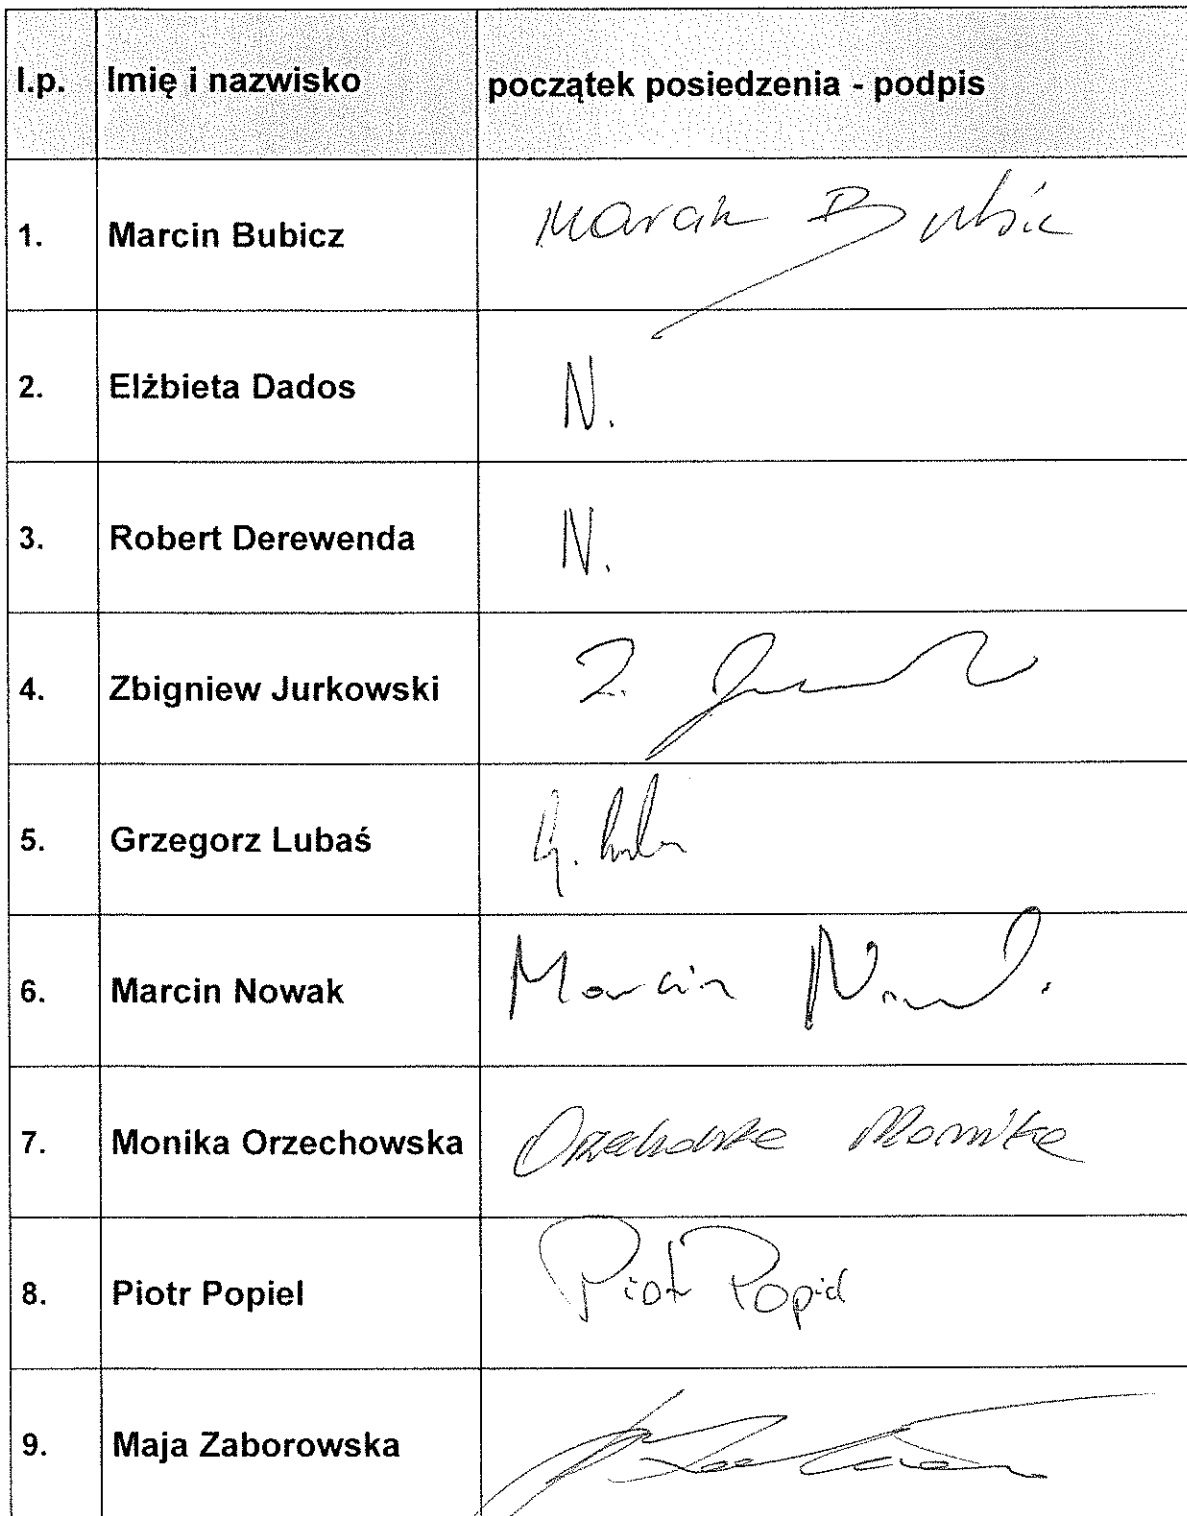 l.p. Imię i nazwisko początek posiedzenia - podpis
1. Marcin Bubicz Marcin Bubicz
2. Elżbieta Dados N.
3. Robert Derewenda N.
4. Zbigniew Jurkowski Z.
5. Grzegorz Lubaś G.
6. Marcin Nowak Marcin
7. Monika Orzechowska Orzechowska Monika
8. Piotr Popiel Piotr Popiel
9. Maja Zaborowska